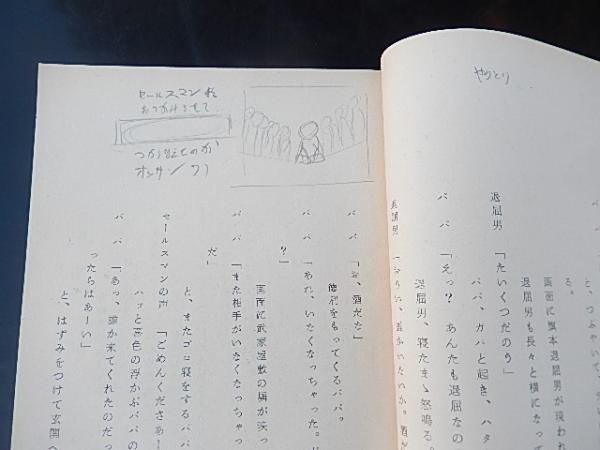 やりとり
と、つぶやいて、テレ
る。
画面に旗本退屈男が現われ
退屈男も長々と横になって
退屈男　「たいくつだのう」
ババ、ガバと起き、ハタ
ババ　「えっ？　あんたも退屈なの
退屈男、寝たまゝ怒鳴る。
セールスマン
つかまえたのか
オッサン
ババ　「お、酒だな」
徳利をもってくるババ。
ババ　「あれ、いなくなっちゃった。
？」
画面に武家屋敷の塀が映っ
ババ　「また相手がいなくなっちゃっ
だ」
と、またゴロ寝をするババ
セールスマンの声　「ごめんくださあー
ハッと喜色の浮かぶババの
ババ　「あっ、誰か来てくれたのだっ
ったらはあーい」
と、はずみをつけて玄関へ